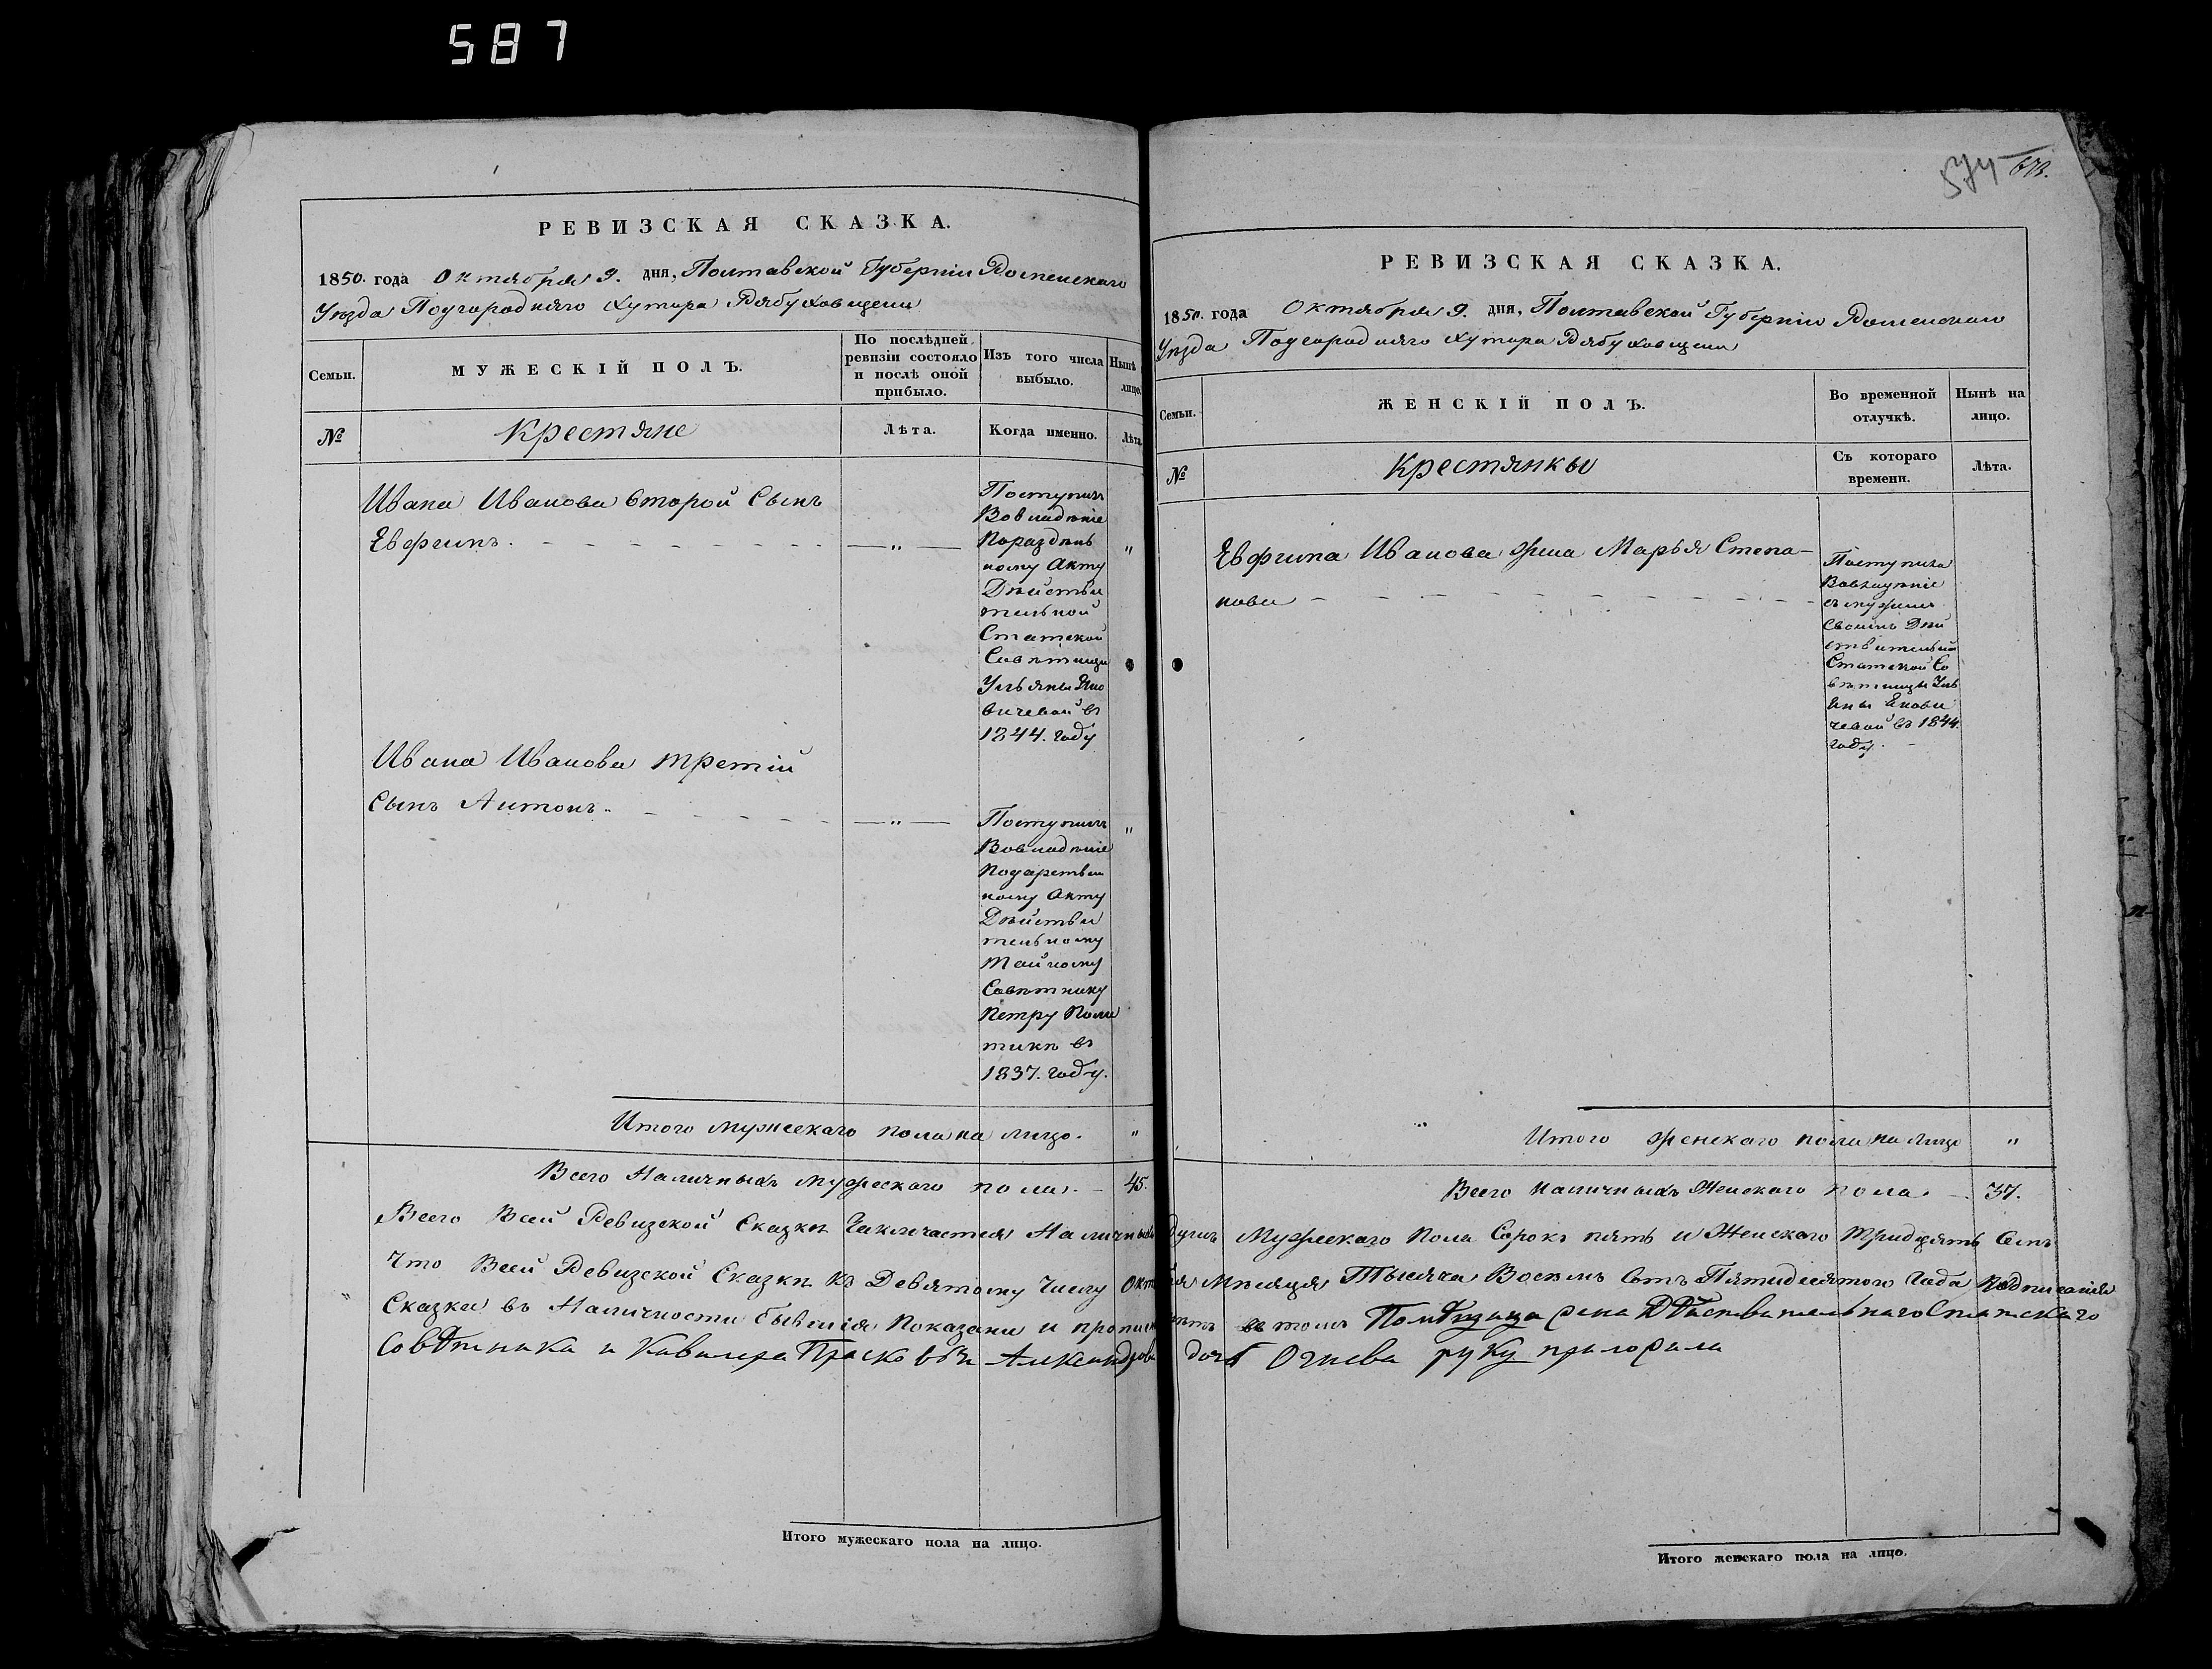 587
574
673.
РЕВИЗСКАЯ СКАЗКА.
1850. года Октября 9. дня, Полтавской Губерніи Роменскаго
Уезда Подгородняго Хутора Рябуховщени
Семьи.
МУЖЕСКІЙ ПОЛЪ.
По послѣдней ревизіи состояло и послѣ оной прибыло.
Изъ того числа выбыло.
Нынѣ лицо.
№
Крестяне
Лѣта.
Когда именно.
Лѣта
Ивана Иванова второй Сынъ
Евфимъ. - - - - - - - — „ —
Поступилъ
Вовладѣніе
Пораздѣль
ному Акту
Дѣйстви
тельной
Статской
Совѣтницы
Ульяны Яно
вичевой въ
1844. году
„
Ивана Иванова третій
Сынъ Антонъ. - - - - - - — „ —
Поступилъ
Вовладѣніе
Подарствен
ному Акту
Дѣйстви
тельному
Тайному
Совѣтнику
Петру Поле
тикѣ въ
1837. году.
„
Итого мужескаго пола на лицо. „
Всего Наличныхъ мужескаго пола. - 45.
Итого мужескаго пола на лицо.
РЕВИЗСКАЯ СКАЗКА.
1850. года Октября 9. дня, Полтавской Губерніи Роменскаго
Уезда Подгородняго Хутора Рябуховщени
Семьи.
ЖЕНСКІЙ ПОЛЪ.
Во временной отлучкѣ.
Нынѣ на лицо.
№
Крестянки
Съ котораго времени.
Лѣта.
Евфима Иванова жена Марья Степа-
нова - - - - - - - - - -
Поступила
Вовладѣніе
съ мужемъ
Своимъ Дѣй
ствительной
Статской Со
вѣтницы Уль
яны Янови
чевой въ 1844.
году. -
Итого женскаго пола на лицо „
Всего Наличныхъ Женскаго пола. - 37.
Всего Всей Ревизской Сказкѣ Заключается Наличныхъ душъ Мужескаго Пола Сорокъ пять и Женскаго Тридцять Семъ
Что Всей Ревизской Сказкѣ Ко Девятому Числу Октября Мѣсяця Тысяча Восемъ Сотъ Пятидесятого Года Подписанія
Сказки въ Наличности бывшія Показани и въ томъ Помѣщица жена Дѣйствительнаго Статскаго
Совѣтника и Кавалера Прасковья Александрова дочь Огнева руку приложила
Итого женскаго пола на лицо.